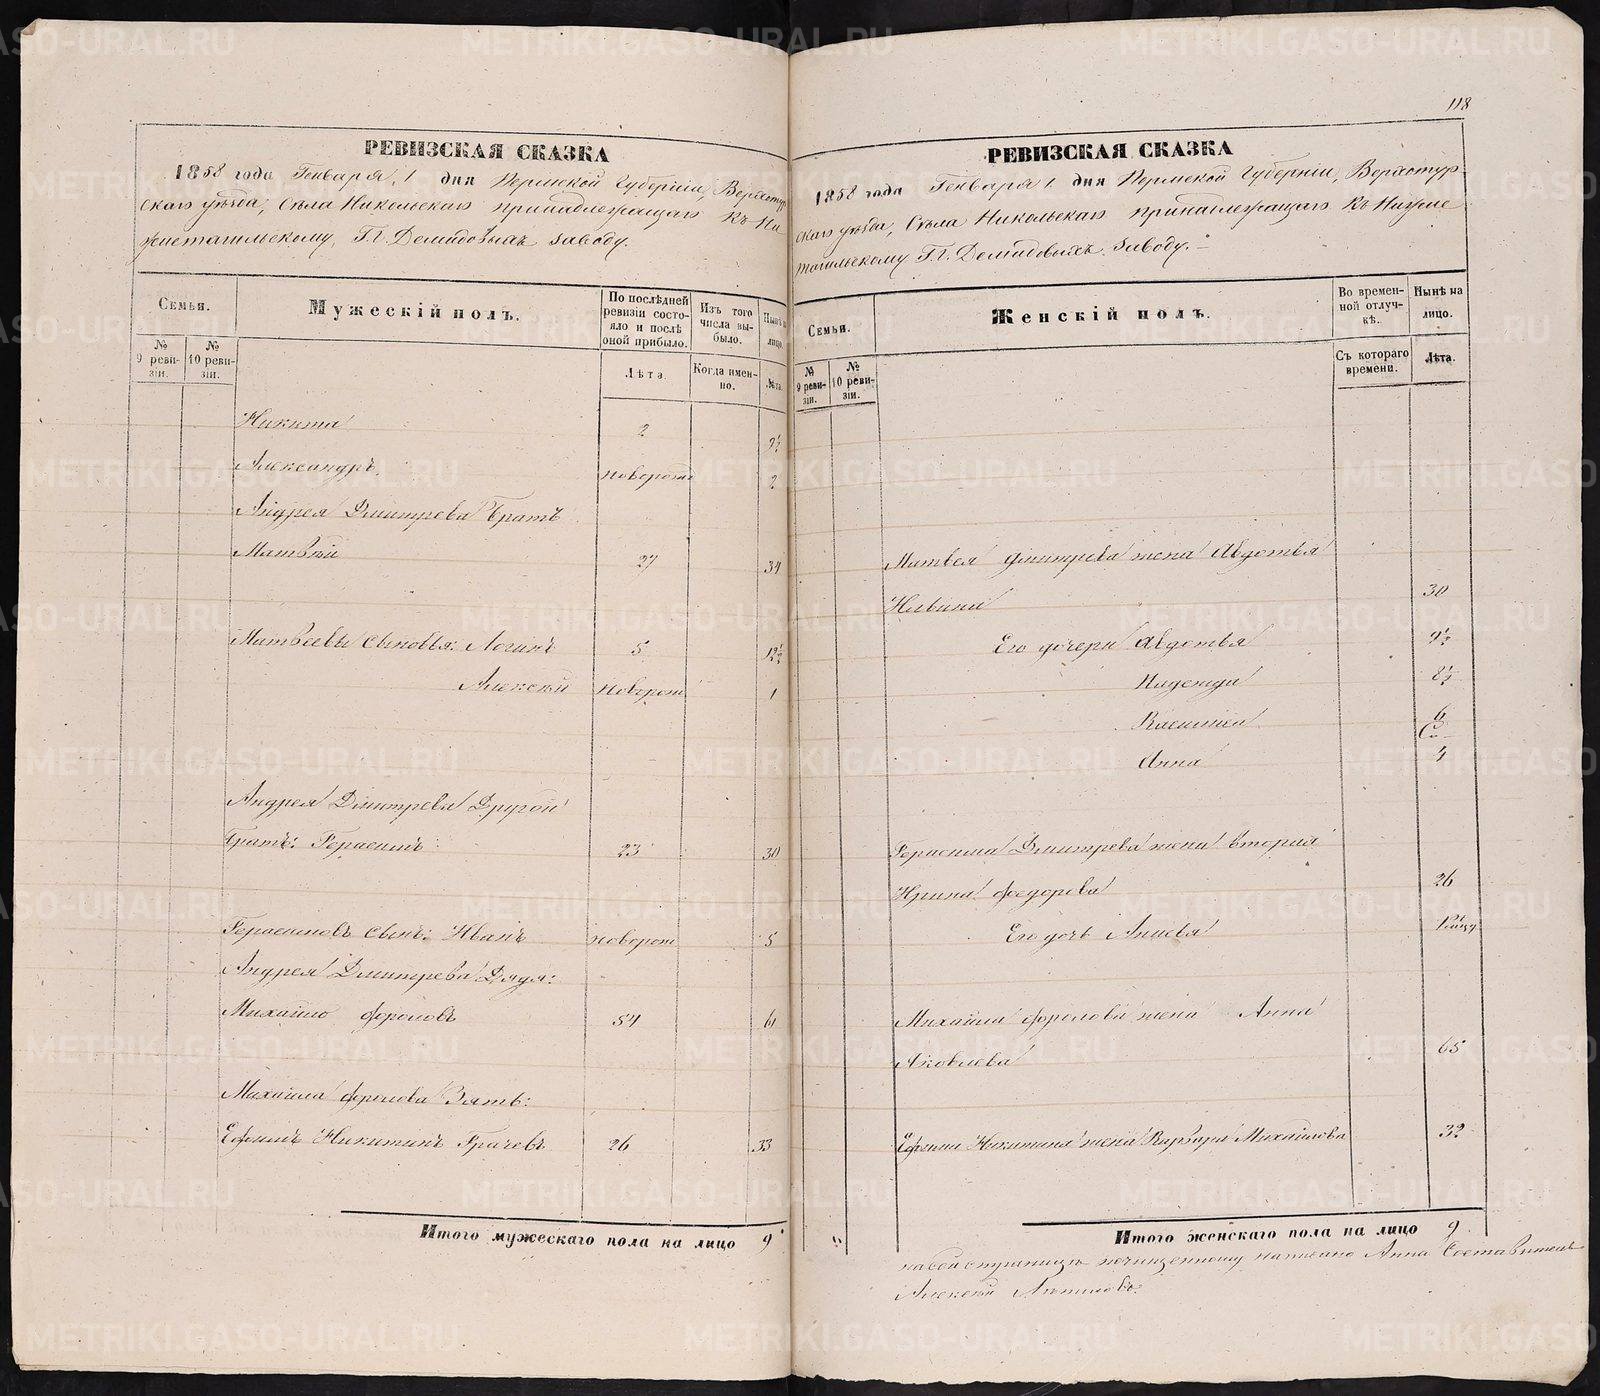 118
РЕВИЗСКАЯ СКАЗКА
1858 года Генваря 1 дня Пермской Губернiи, Верхотур
скаго уѣзда, Села Никольскаго принадлежащаго Къ Ни
жнетагильскому, Г.г. Демидовыхъ заводу.
Семья.
№ 9 реви-зiи.
№ 10 реви-зiи.
Мужескiй полъ.
По послѣдней ревизiи состо-яло и послѣ оной прибыло.
Лѣта.
Изъ того числа вы-было.
Когда имен-но.
Нынѣ на лицо.
Лѣта.
Никита 2 9½
Александръ новорож 2
Андрея Дмитрева братъ
Матвѣй 27 34
Матвеевы сыновья: Логинъ 5 12½
Алексѣй новорож 1
Андрея Дмитрева Другой
братъ: Герасимъ 23 30
Герасимовъ сынъ: Иванъ новорож 5
Андрея Дмитрева Дядя:
Михайло Фроловъ 54 61
Михайла Фролова Зять:
Ефимъ Никитинъ Грачевъ 26 33
Итого мужескаго пола на лицо 9
РЕВИЗСКАЯ СКАЗКА
1858 года Генваря 1 дня Пермской Губернiи, Верхотур
скаго уѣзда, Села Никольскаго принадлежащаго Къ Нижне
тагильскому Г.г. Демидовыхъ заводу.
Семьи.
№ 9 реви-зiи.
№ 10 реви-зiи.
Женскiй полъ.
Во времен-ной отлуч-кѣ.
Съ котораго времени.
Нынѣ на лицо.
Лѣта.
Матвея Дмитрева жена Авдотья
30
Его дочери Авдотья 9½
Надежда 8½
Васильса 6
Анна 4
Герасима Дмитрева жена вторая
Ирина Федорова 26
Его дочь
Михайла Фролова жена Анна
Яковлева 65
Ефима Никитина жена Варвара Михайлова 32
Итого женскаго пола на лицо 9
на сей страницѣ почищенному написано Анна Составитель
Алексѣй